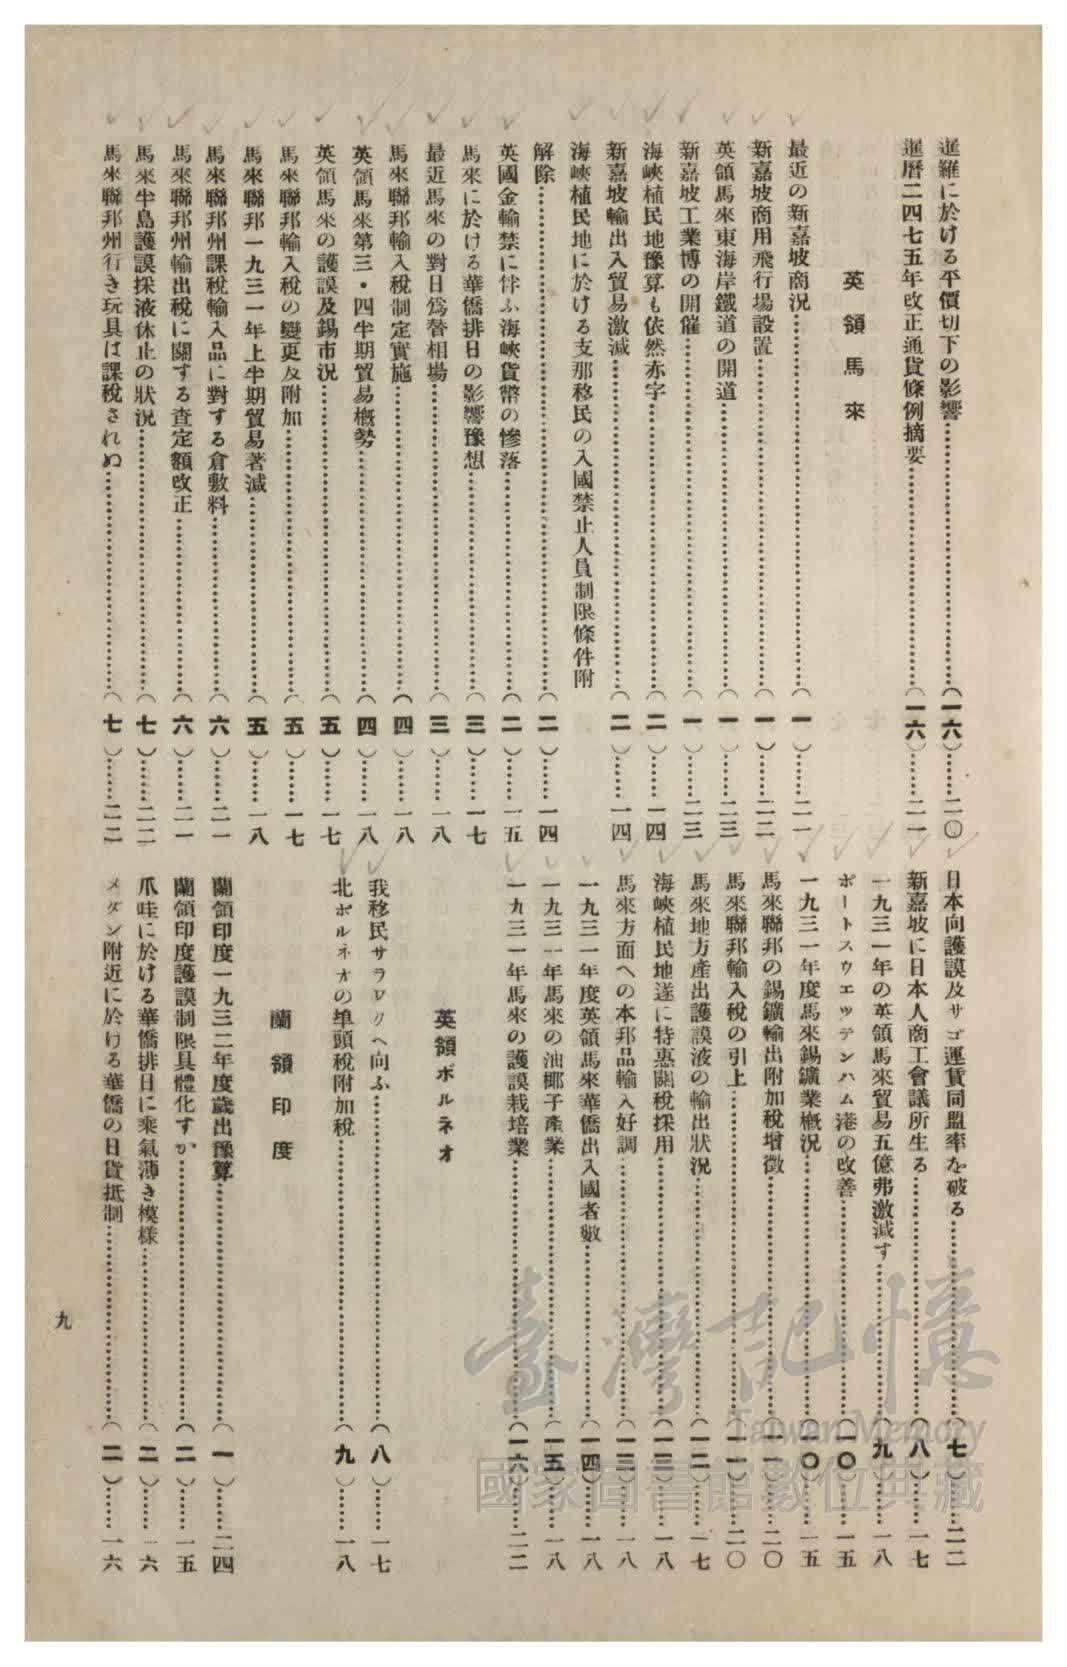 暹羅に於ける平價切下の影響……(一六)……二〇
暹曆二四七五年改正通貨條例摘要……(一六)……二一
英領馬來
最近の新嘉坡商況……(一)……二一
新嘉坡商用飛行場設置……(一)……二二
英領馬來東海岸鐵道の開道……(一)……二三
新嘉坡工業博の開催……(一)……二三
海峽植民地豫算も依然赤字……(二)……一四
新嘉坡輸出入貿易激減……(二)……一四
海峽植民地に於ける支那移民の入國禁止人員制限條件附
解除……(二)……一四
英國金輸禁に伴ふ海峽貨幣の慘落……(二)……一五
馬來に於ける華僑排日の影響豫想……(三)……一七
最近馬來の對日爲替相場……(三)……一八
馬來聯邦輸入稅制定實施……(四)……一八
英領馬來第三・四半期貿易槪勢……(四)……一八
英領馬來の護謨及錫市況……(五)……一七
馬來聯邦輸入稅の變更及附加……(五)……一七
馬來聯邦一九三一年上半期貿易著減……(五)……一八
馬來聯邦州課稅輸入品に對する倉敷料……(六)……二一
馬來聯邦州輸出稅に關する査定額改正……(六)……二一
馬來半島護謨採液休止の狀況……(七)……二二
馬來聯邦州行き玩具は課稅されぬ……(七)……二二
日本向護謨及サゴ運賃同盟率を破る……(七)……二二
新嘉坡に日本人商工會議所生る……(八)……一七
一九三一年の英領馬來貿易五億弗激減す……(九)……一八
ポートスウエッテンハム港の改善……(一〇)……一五
一九三一年度馬來錫鑛業槪況……(一〇)……一五
馬來聯邦の錫鑛輸出附加稅增徵……(一一)……二〇
馬來聯邦輸入稅の引上……(一一)……二〇
馬來地方產出護謨液の輸出狀況……(一二)……一七
海峽植民地遂に特惠關稅採用……(一三)……一八
馬來方面への本邦品輸入好調……(一三)……一八
一九三一年度英領馬來華僑出入國者數……(一四)……一八
一九三一年馬來の油椰子產業……(一五)……一八
一九三一年馬來の護謨栽培業……(一六)……二二
英領ボルネオ
我移民サラワクへ向ふ……(八)……一七
北ボルネオの埠頭稅附加稅……(九)……一八
蘭領印度
蘭領印度一九三二年度歲出豫算……(一)……二四
蘭領印度護謨制限具體化すか……(二)……一五
爪哇に於ける華僑排日に乘氣薄き模樣……(二)……一六
メダン附近に於ける華僑の日貨抵制……(二)……一六
九
臺灣記憶
Taiwan Memory
國家圖書館數位典藏